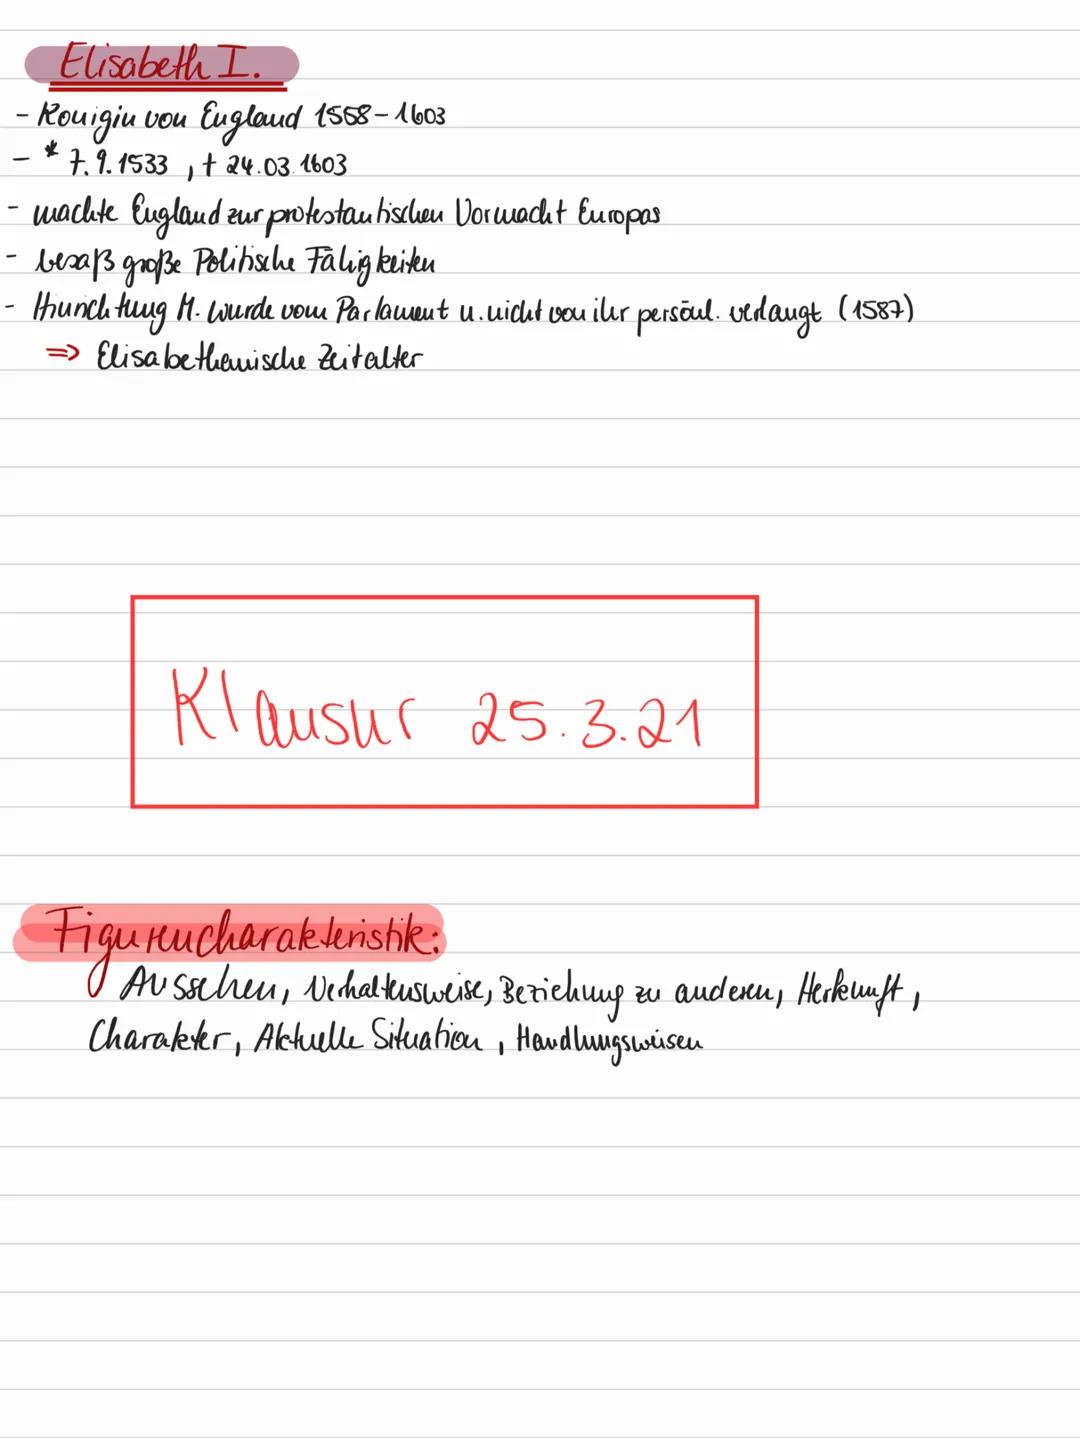 Elisabeth I.
- Königin von England 1558-1603
- * 7.9.1533, † 24.03.1603
- machte England zur protestantischen Vormacht Europas
- besaß große Politische Fähigkeiten
- Hinrichtung M. wurde vom Parlament u. nicht von ihr persönl. verlangt (1587)
=> Elisabethanische Zeitalter
Klausur 25.3.21
Figurencharakteristik:
Aussehen, Verhaltensweise, Beziehung zu anderen, Herkunft,
Charakter, Aktuelle Situation, Handlungsweisen